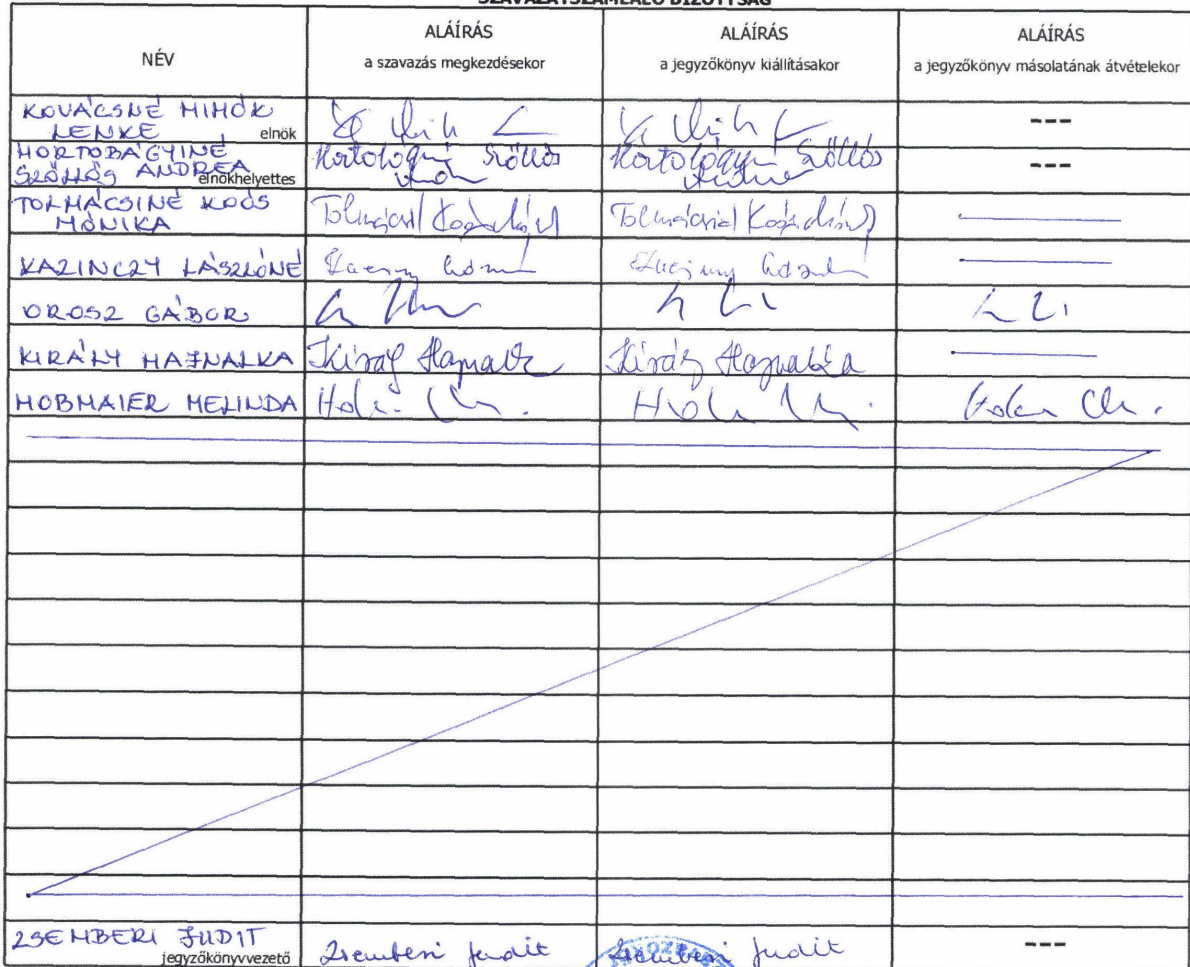 SZAVAZATSZÁMLÁLÓ BIZOTTSÁG
NÉV
ALÁÍRÁS
a szavazás megkezdésekor
ALÁÍRÁS
a jegyzőkönyv kiállításakor
ALÁÍRÁS
a jegyzőkönyv másolatának átvételekor
KOVÁCSNÉ MIHÓK
LENKE elnök
---
HORTOBÁGYINÉ
SZŐLLŐS ANDREA elnökhelyettes
Hortobágyiné Szőllős
Hortobágyiné Szőllős
---
TOLMÁCSINÉ KOÓS
MÓNIKA
KAZINCZY LÁSZLÓNÉ
OROSZ GÁBOR
KIRÁLY HAJNALKA
Király Hajnalka
Király Hajnalka
HOBMAIER MELINDA
ZSEMBERI JUDIT
jegyzőkönyvvezető
Zsemberi Judit
Zsemberi Judit
---